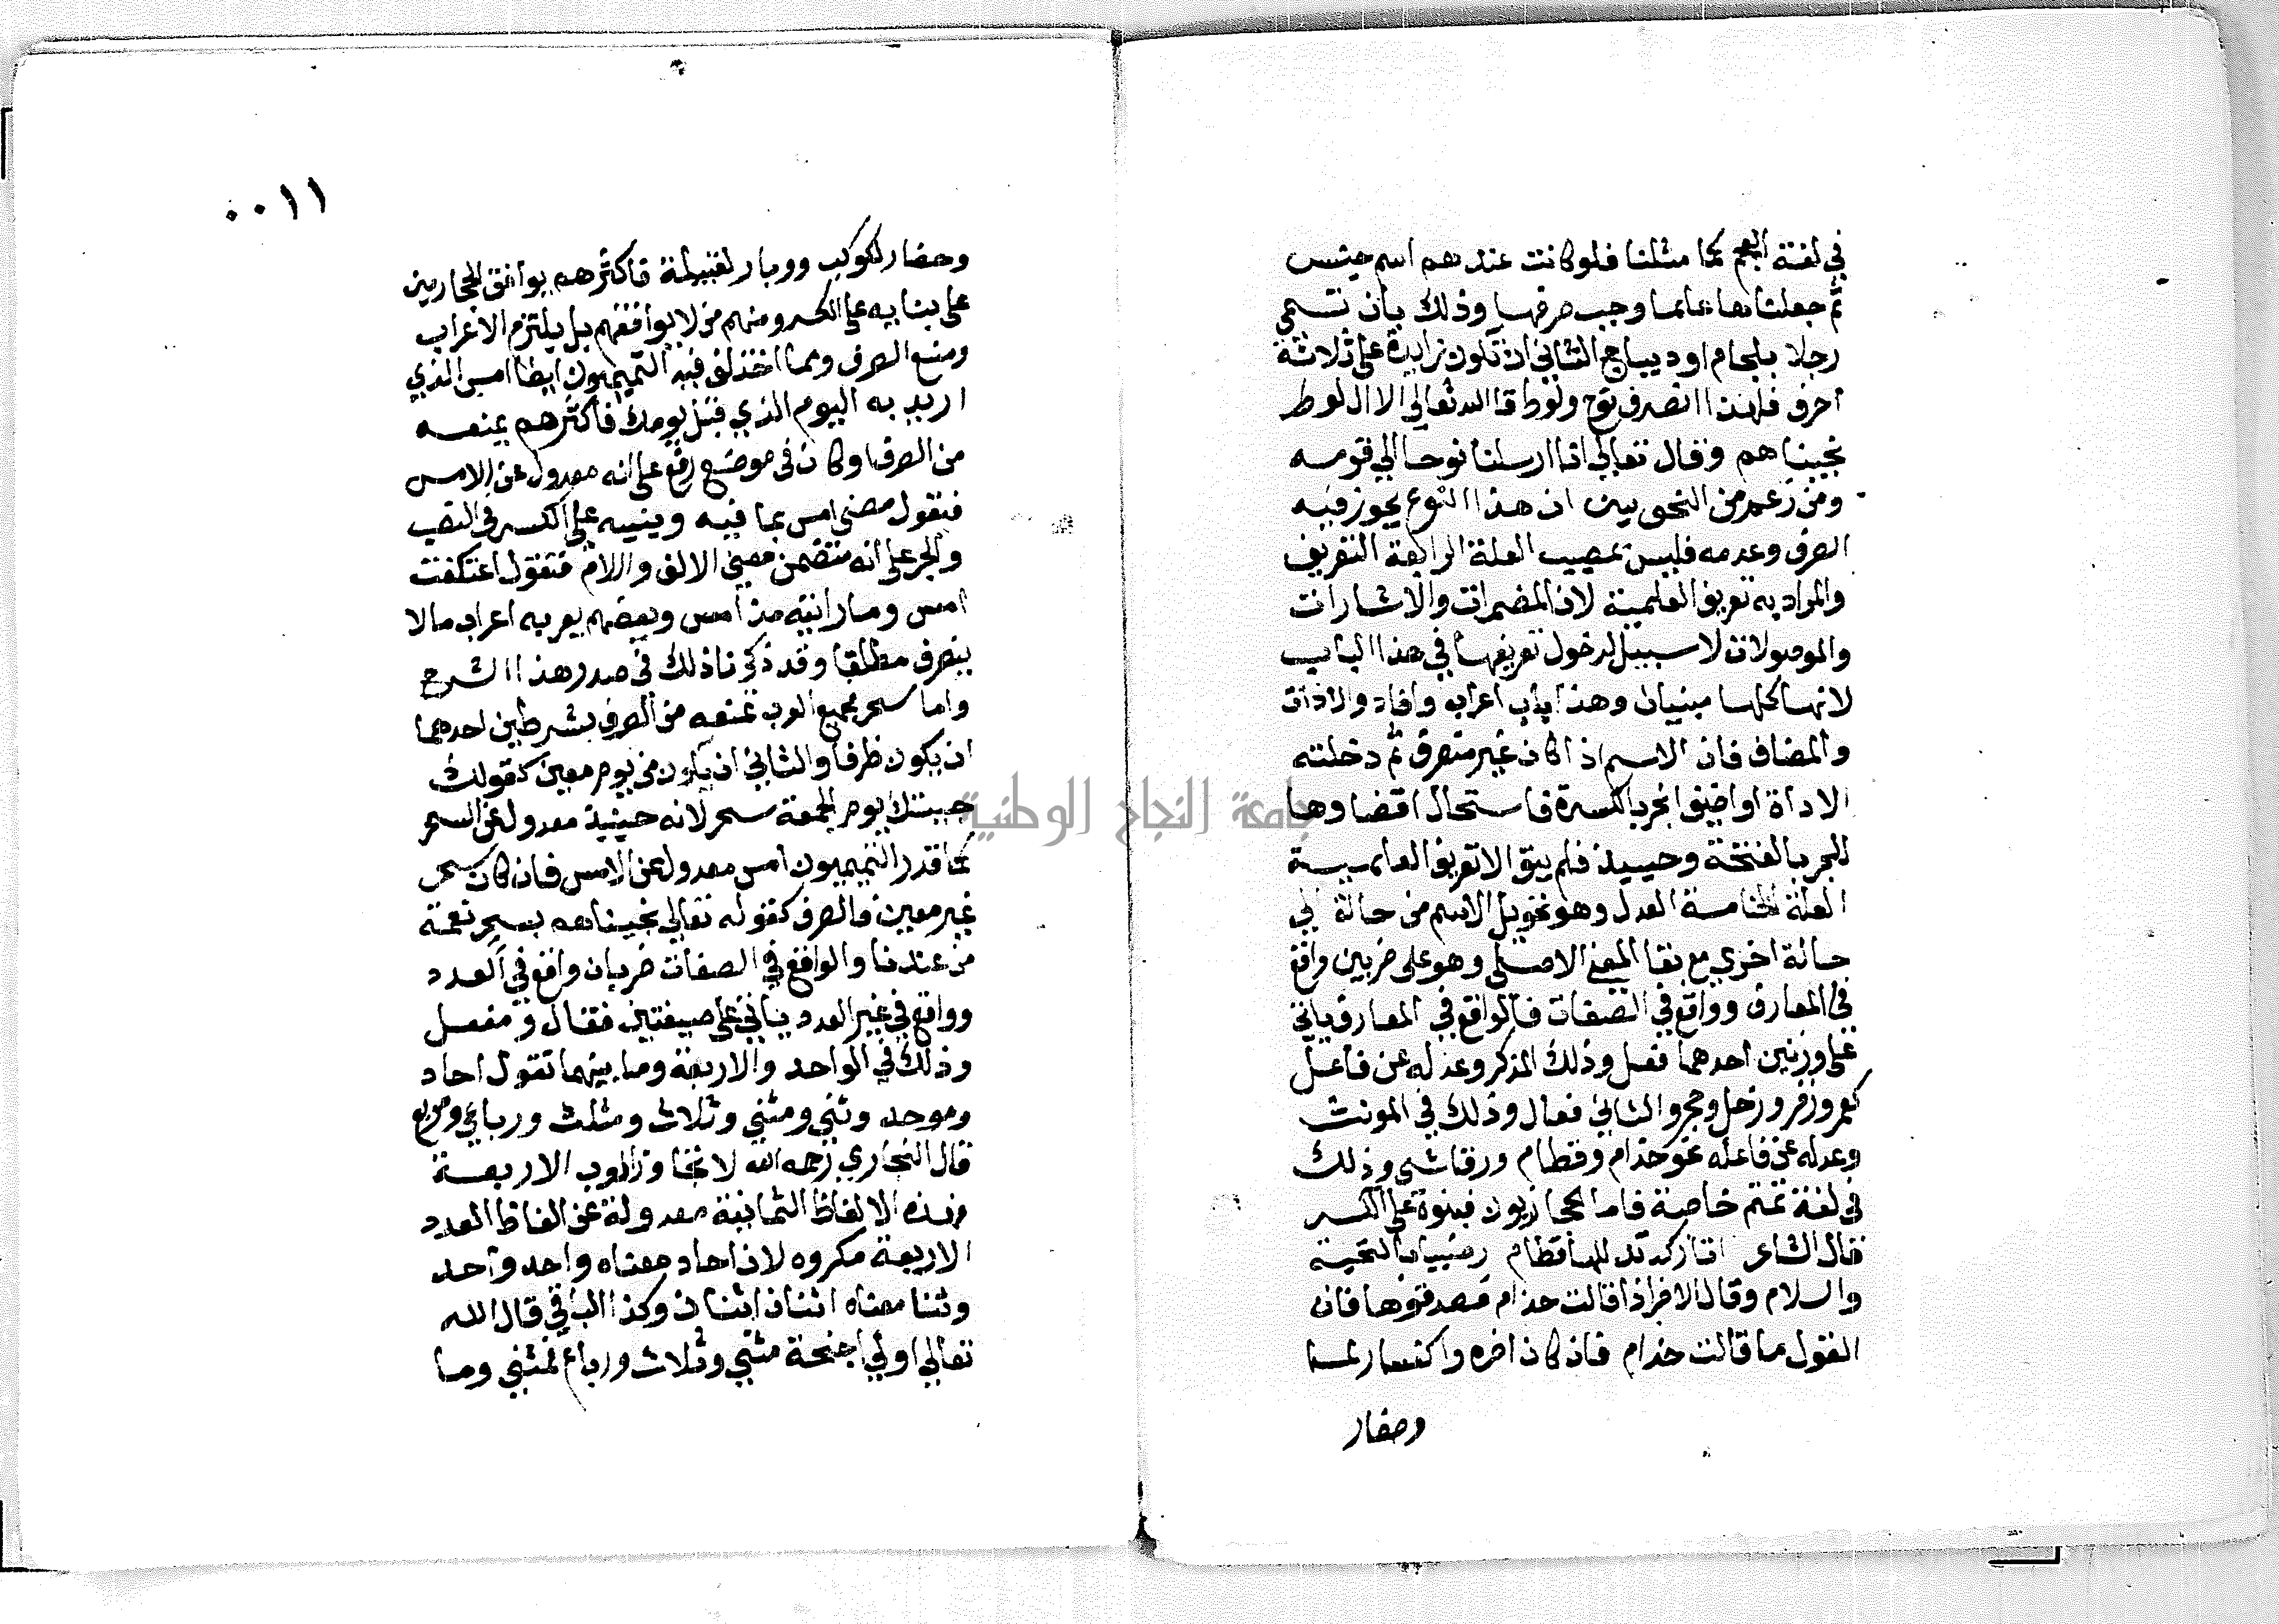 في لغة العجم كما مثلنا فلو كانت عندهم اسم جنس
ثم جعلناها علما وجب صرفها وذلك بأن تسمي
رجلا بلجام او ديباج الثاني ان تكون زايدة على ثلاثة
احرف فلهذا انصرف نوح ولوط قال الله تعالى الا ال لوط
نجيناهم وقال تعالى انا ارسلنا نوحا الي قومه
ومن زعم من النحويين ان هذا النوع يجوز فيه
الصرف وعدمه فليس بمصيب العلة الرابعة التعريف
والمراد به تعريف العلمية لان المضمرات والاشارات
والموصولات لا سبيل لدخول تعريفها في هذا الباب
لانها كلها مبنيات وهذا باب اعراب واما ذو الاداة
والمضاف فان الاسم اذا كان غير منصرف ثم دخلته
الاداة او اضيف انجر بالكسرة فاستحال اقتضاوها
للجر بالفتحة وحينيذ فلم يبق الا تعريف العلمية
العلة الخامسة العدل وهو تحويل الاسم من حالة الي
حالة اخري مع بقا المعني الاصلي وهو على ضربين واقع
في المعارف وواقع في الصفات فالواقع في المعارف ياتي
على وزنين احدهما فعل وذلك المذكر وعدله عن فاعل
كعمر وزفر وزحل وجمح والثاني فعال وذلك في المونث
وعدله عن فاعلة نحو حذام وقطام ورقاش وذلك
في لغة تميم خاصة فاما الحجازيون فبنوه على الكسر
قال الشاعر اتاركة تدللها قطام رضينا بالتحية
والسلام وقال الاخر اذا قالت حذام فصدقوها فان
القول ما قالت حذام فان كان اخره راكسفار لما
وحضار
٠٠١١
وحضار لكوكب ووبار لقبيلة فاكثرهم يوافق الحجازيين
على بنايه على الكسر ومنهم من لا يوافقهم بل يلتزم الاعراب
ومنع الصرف ومما اختلف فيه التميميون ايضا امس الذي
اريد به اليوم الذي قبل يومك فاكثرهم يمنعه
من الصرف اوكان في موضع رفع على انه معدول عن الامس
فتقول مضى امس بما فيه ويبنيه على الكسر في النصب
والجر على انه متضمن معني الالف واللام فتقول اعتكفت
امس وما رايته مذ امس وبعضهم يعربه اعراب ما لا
ينصرف مطلقا وقد ذكرنا ذلك في صدر هذا الشرح
واما سحر فجميع العرب تمنعه من الصرف بشرطين احدهما
ان يكون ظرفا والثاني ان يكون من يوم معين كقولك
جيتك يوم الجمعة سحر لانه حينيذ معدول عن السحر
كما قدر التميميون امس معدول عن الامس فان كان سحر
غير معين فالصرف كقوله تعالي نجيناهم بسحر نعمة
من عندنا والواقع في الصفات ضربان واقع في العدد
وواقع في غير العدد ياتي على صيغتين فعال ومفعل
وذلك في الواحد والاربعة وما بينهما تقول احاد
وموحد وثني ومثني وثلاث ومثلث ورباع ومربع
قال البخاري رحمه الله لا تتجاوز العرب الاربعة
فهذه الالفاظ الثمانية معدولة عن الفاظ العدد
الاربعة مكروه لان احاد معناه واحد واحد
وثنا معناه اثنان اثنان وكذا الباقي قال الله
تعالي اولي اجنحة مثني وثلاث ورباع فمثني وما
جامعة النجاح الوطنية